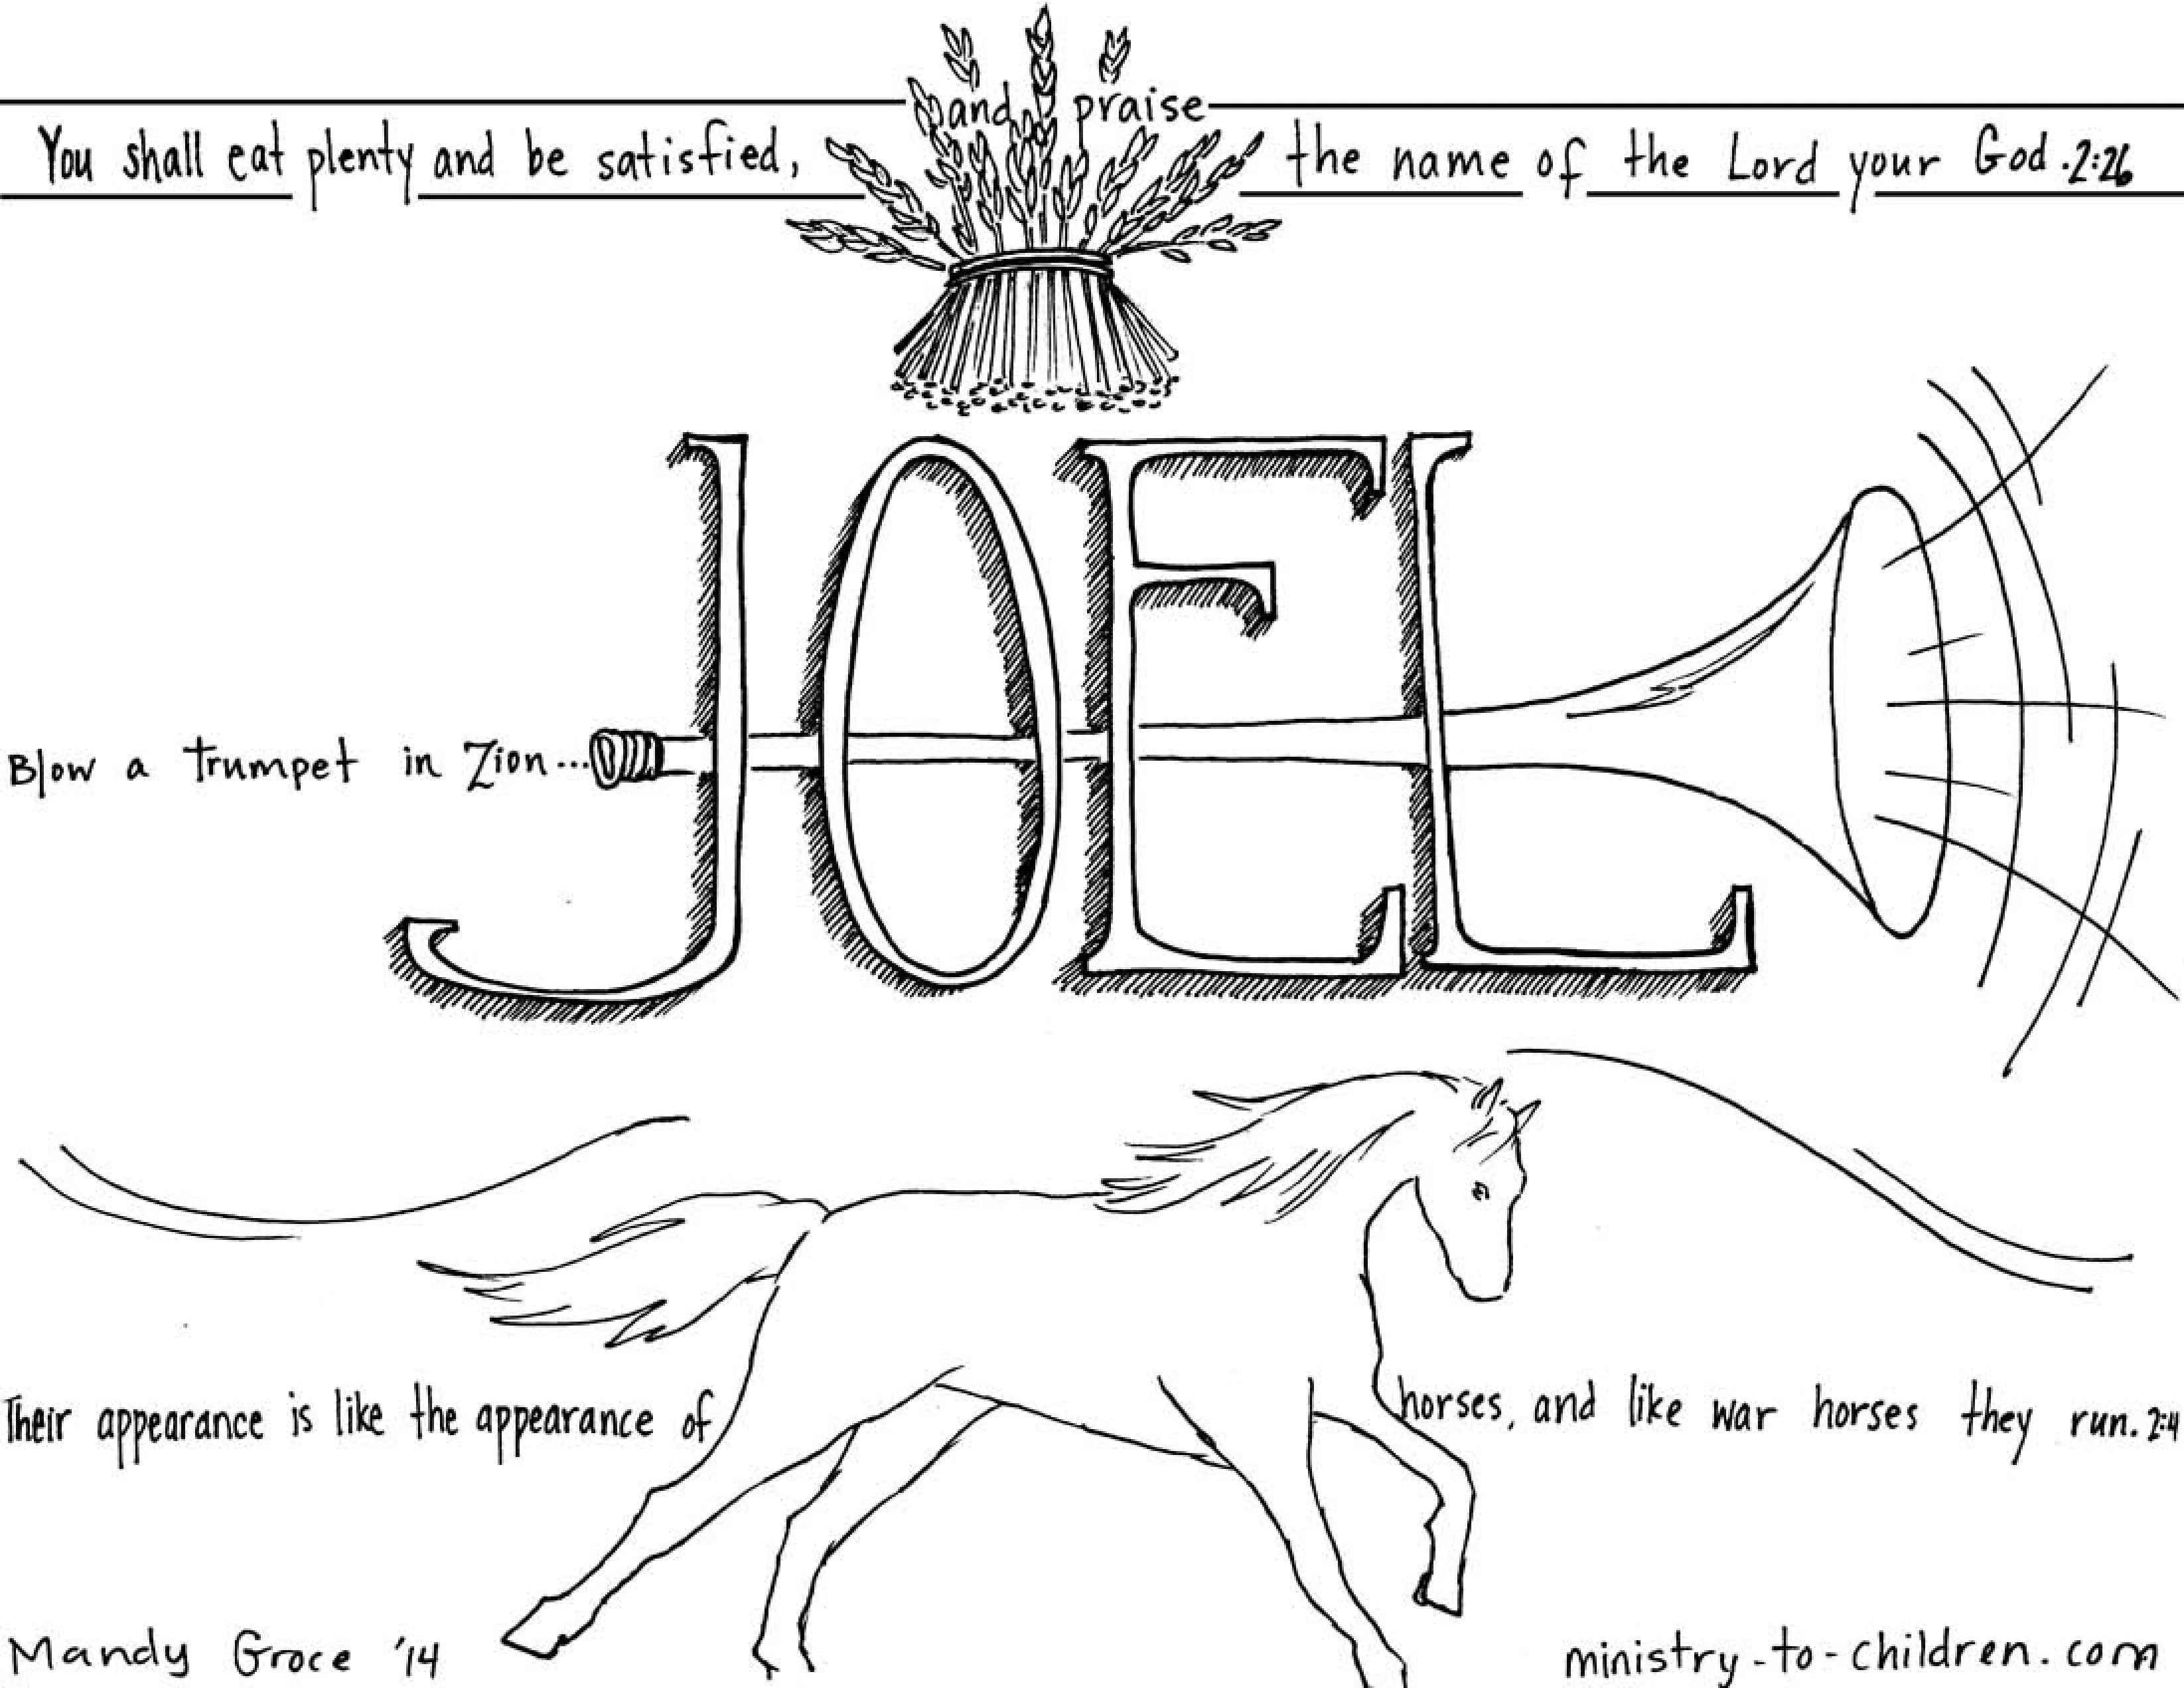 You shall eat plenty and be satisfied, and praise the name of the Lord your God. 2:26
JOEL
Blow a trumpet in Zion...
Their appearance is like the appearance of horses, and like war horses they run. 2:4
Mandy Groce '14
ministry-to-children.com